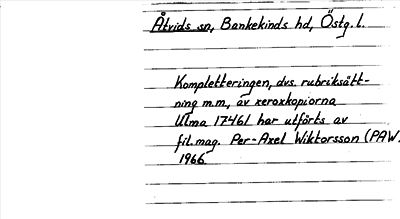 Åtvids sn, Bankekinds hd, Östg. l.
Kompletteringen, dvs. rubriksätt-
ning m.m., av xeroxkopiorna
Ulma 17461 har utförts av
fil.mag. Per-Axel Wiktorsson (PAW.
1966.